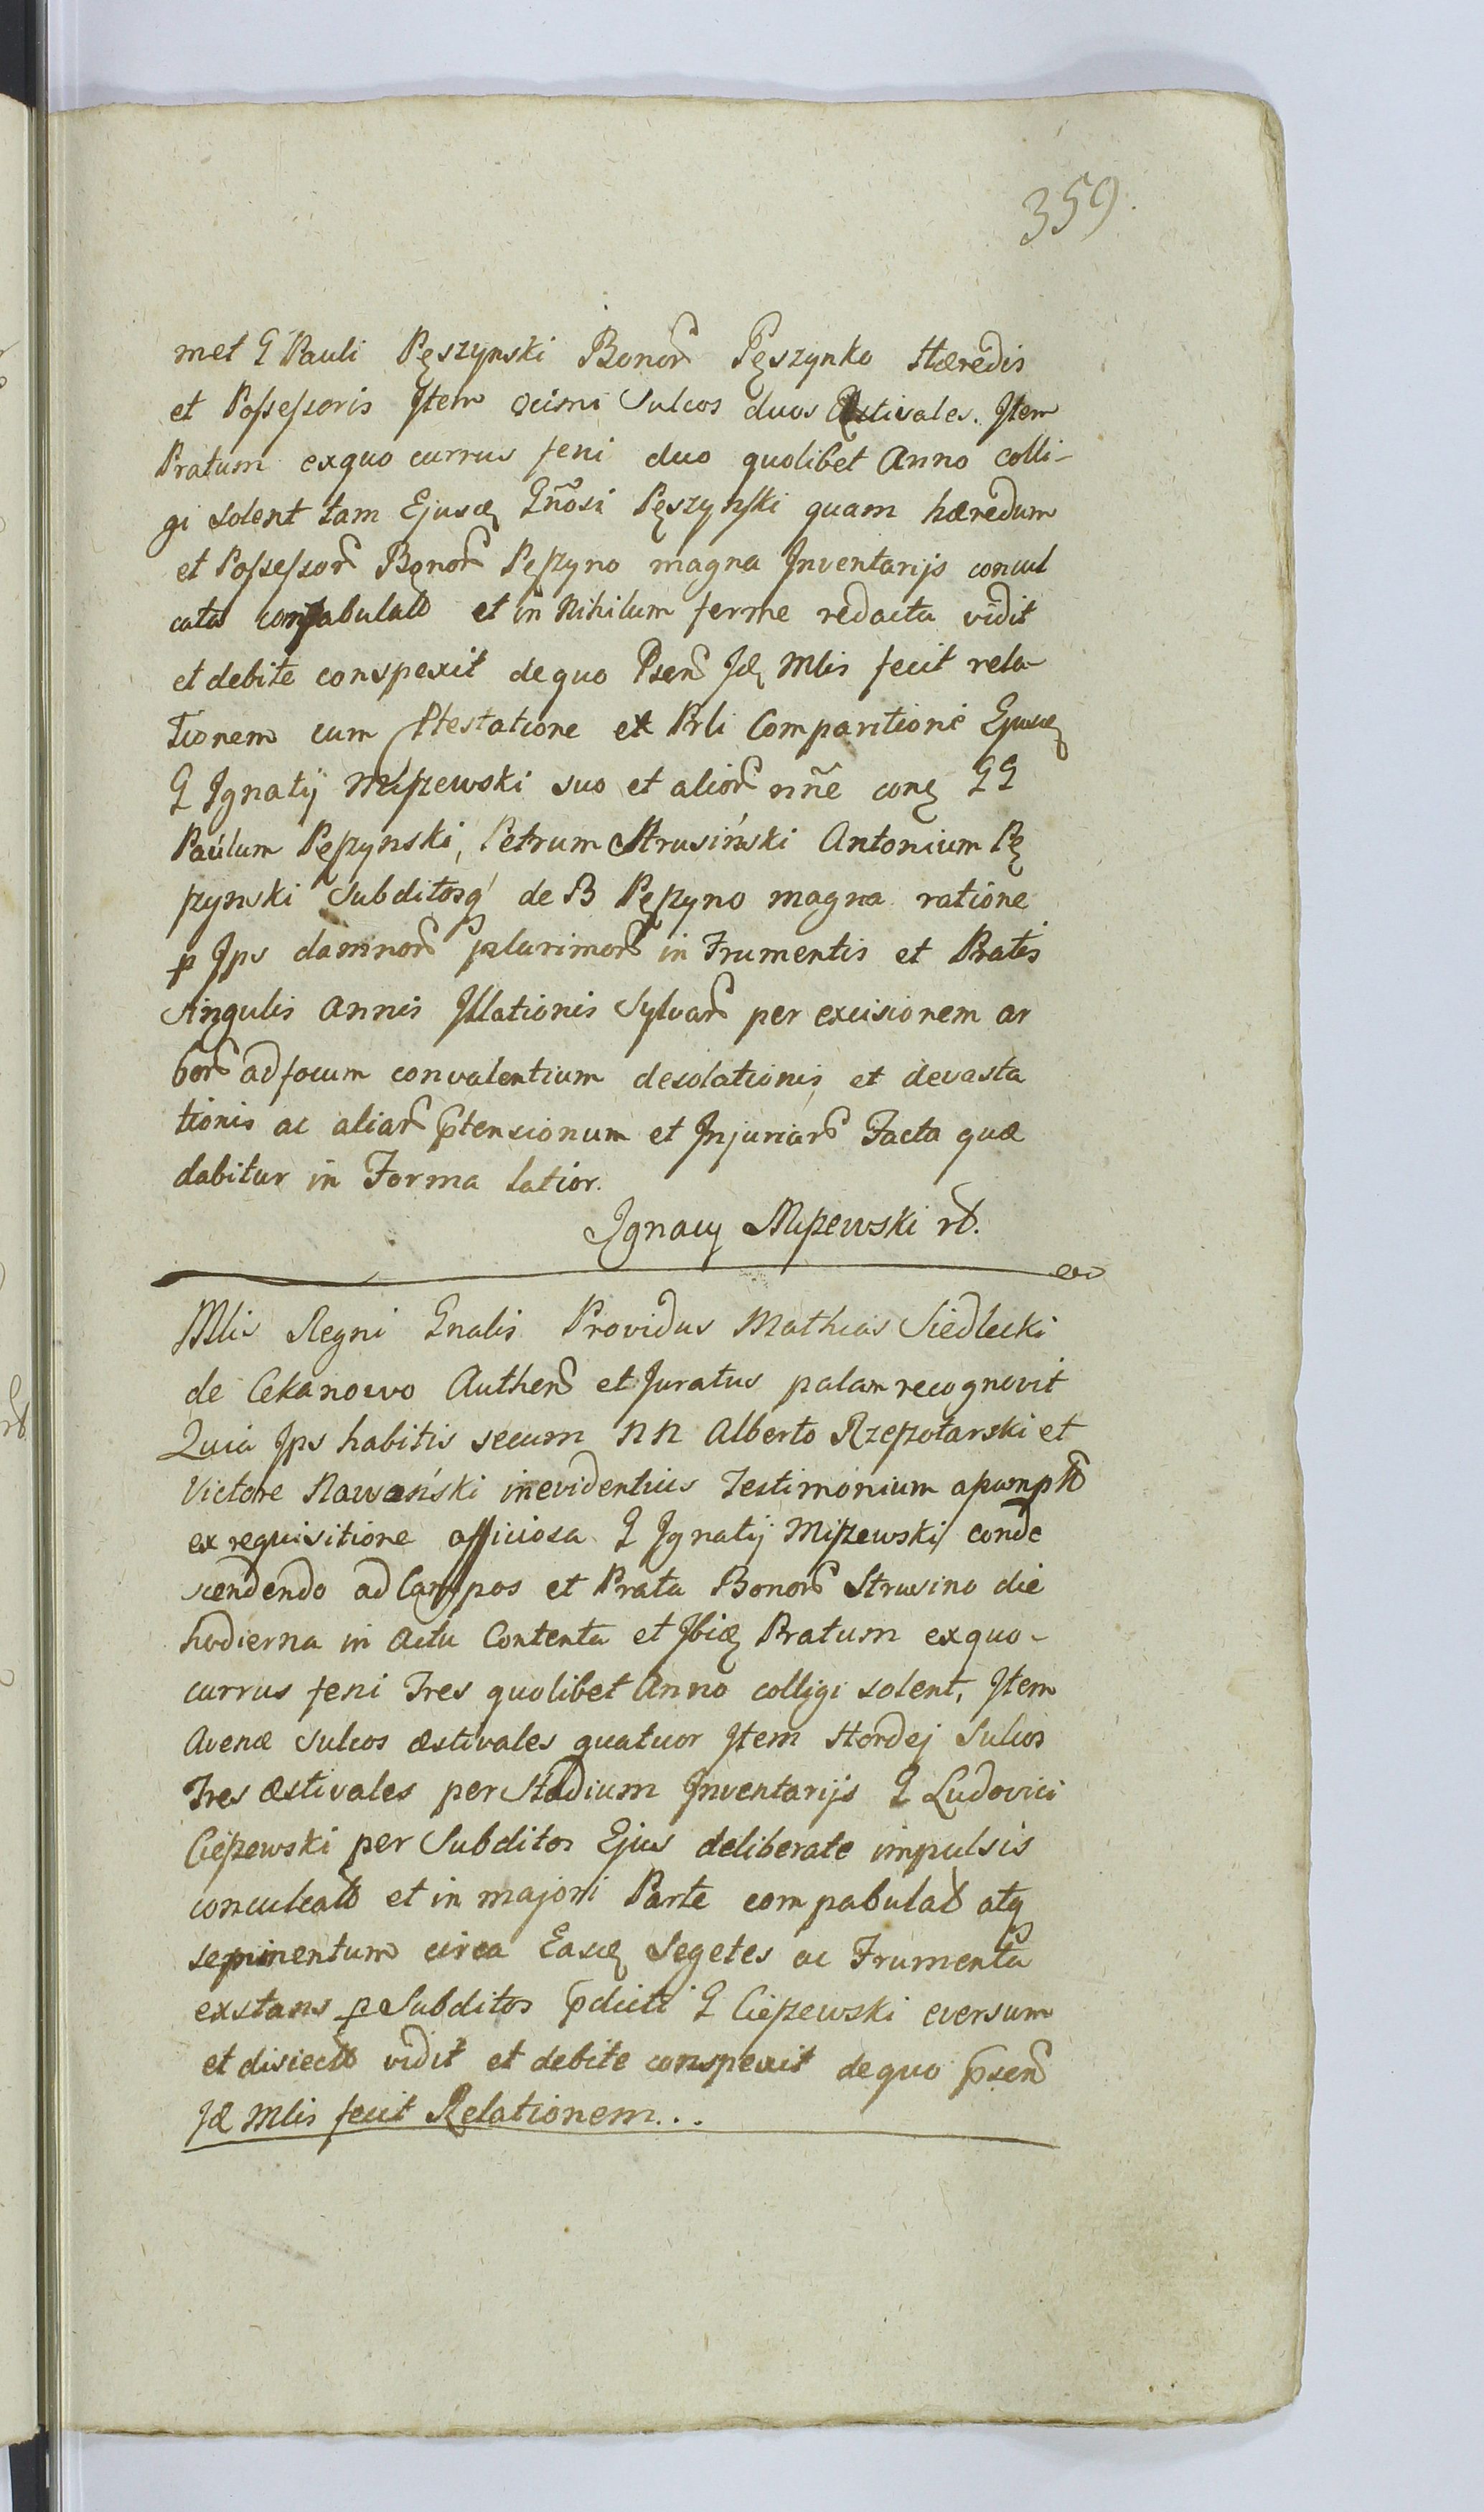 359.
met G Pauli Pęszynski Bonor Pęszynko Hæredis
et Possessoris Item ocimi Sulcos duos Æstivales. Item
Pratum exquo currus feni duo quolibet Anno colli-
gi solent tam Ejusd Gñosi Pęszynski quam hæredum
et Possessor Bonor Pęszyno magna Inventarijs concul
cata compabulat et in Nihilum ferme redacta vidit
et debite conspexit dequo Psens Id Mlis fecit rela-
tionem cum Ptestatione ex Prli Comparitione Ejusd
G Ignatij Miszewski suo et alior nñe con GG
Paulum Pęszynski, Petrum Strusiński Antonium Pę
szynski Subditosq de B Pęszyno magna ratione
p Ips damnor plurimor in Frumentis et Pratis
Singulis Annis Illationis Sylvar per excisionem ar
bor ad focum convalentium desolationis et devasta
tionis ac aliar ptensionum et Injuriar Facta quæ
dabitur in Forma latior.
Ignacy Miszewski
Mlis Regni Gnalis Providus Mathias Siedlecki
de Cekanowo Authen et Juratus palam recognovit
Quia Ips habitis secum NN Alberto Rzeszotarski et
Victore Rawański inevidentius Testimonium
ex requisitione officiosa G Ignatij Miszewski conde
scendendo ad Campos et Prata Bonor Strusino die
hodierna in Actu Contenta et Ibid Pratum exquo-
currus feni Tres quolibet Anno colligi solent, Item
Avenæ sulcos æstivales quatuor Item Hordej Sulcos
Tres æstivales per Stadium Inventarijs G Ludovici
Cieszewski per Subditos Ejus deliberate impulsis
conculcat et in majori Parte compabulat atq
sepimentum circa Easd Segetes ac Frumenta
exstans p Subditos pdicti G Cieszewski eversum
et disiect vidit et debite conspexit dequo psens
Id Mlis fecit Relationem...